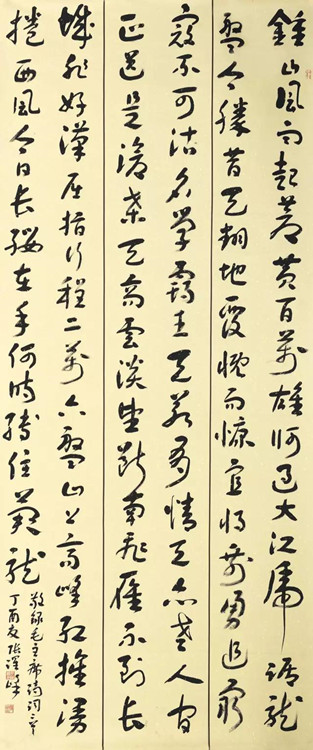 鍾山風雨起蒼黃百萬雄師過大江虎踞龍
盤今勝昔天翻地覆慨而慷宜將剩勇追窮
寇不可沽名學霸王天若有情天亦老人間
正道是滄桑天高雲淡望斷南飛雁不到長
城非好漢屈指行程二萬六盤山上高峰紅旗漫
捲西風今日長纓在手何時縛住蒼龍
敬録毛主席詩詞二章
丁酉夏